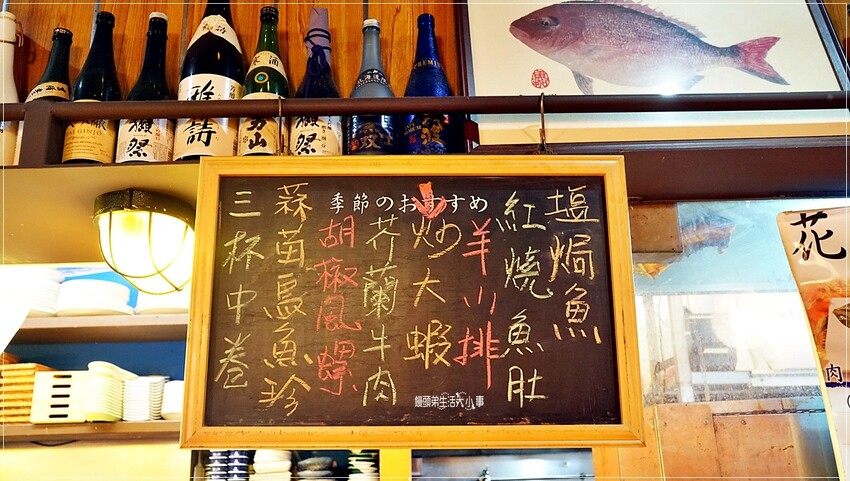 季節のおすすめ
塩焗魚
紅燒魚肚
羊小排
炒大蝦
芥蘭牛肉
胡椒風螺
蒜苗烏魚珍
三杯中卷
饅頭弟生活大小事
獺祭
獺祭
花
肉